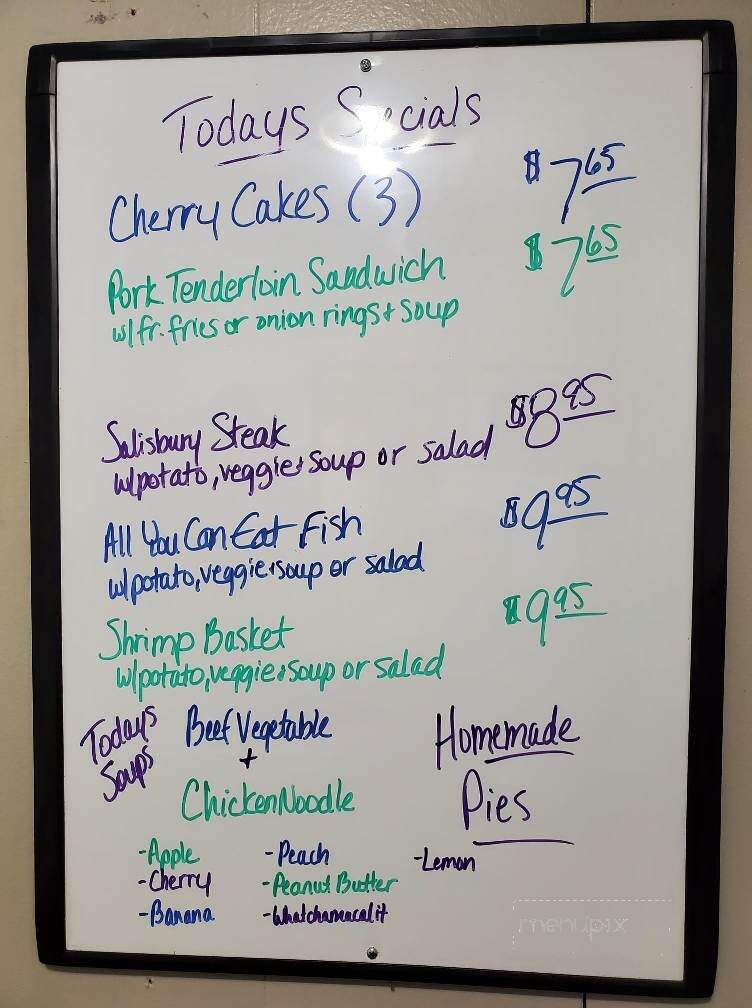 Todays Specials
Cherry Cakes (3) $7.65
Pork Tenderloin Sandwich $7.65
w/fr. fries or onion rings + soup
Salisbury Steak $8.95
w/potato, veggie + soup or salad
All You Can Eat Fish $9.95
w/potato, veggie + soup or salad
Shrimp Basket $9.95
w/potato, veggie + soup or salad
Todays
Soups
Beef Vegetable
+
Chicken Noodle
Homemade
Pies
-Apple
-Cherry
-Banana
-Peach
-Peanut Butter
-Whatchamacalit
-Lemon
menupix